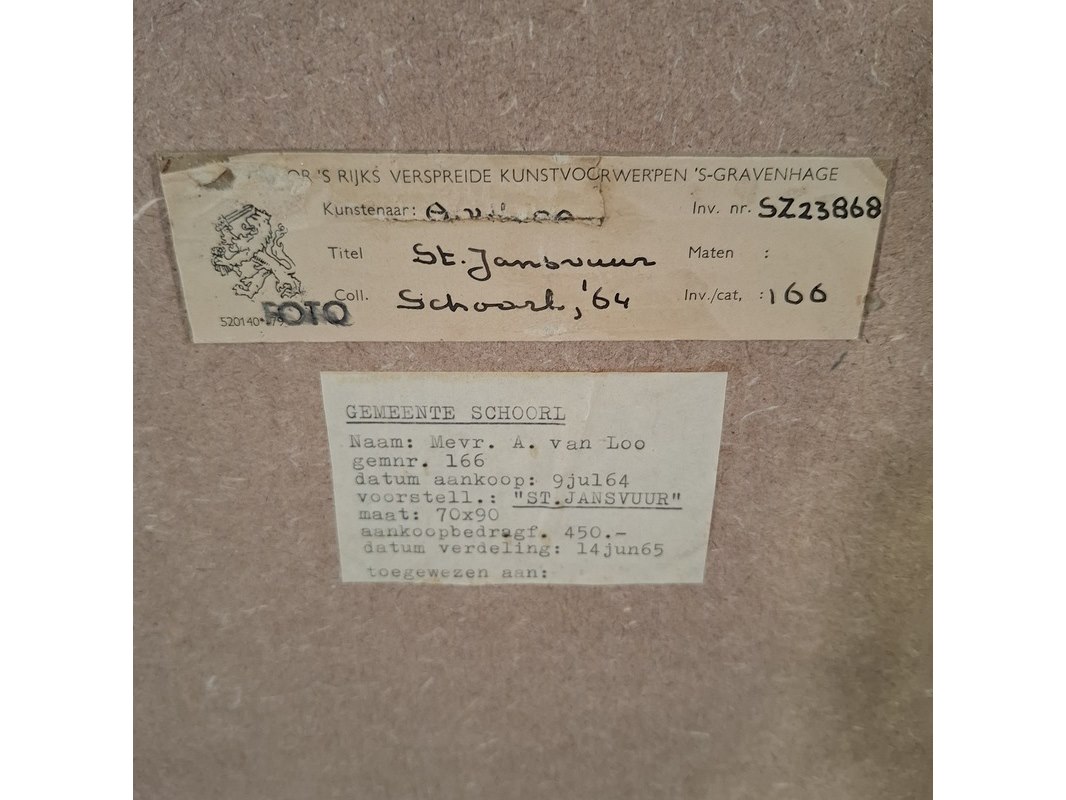 'S RIJKS VERSPREIDE KUNSTVOORWERPEN 'S-GRAVENHAGE
Kunstenaar: Inv. nr. SZ23868
Titel St. Jansvuur Maten :
Coll. Schoorl, '64 Inv./cat, : 166
FOTO
GEMEENTE SCHOORL
Naam: Mevr. A. van Loo
gemnr. 166
datum aankoop: 9jul64
voorstell.: "ST.JANSVUUR"
maat: 70x90
aankoopbedragf. 450.-
datum verdeling: 14jun65
toegewezen aan: